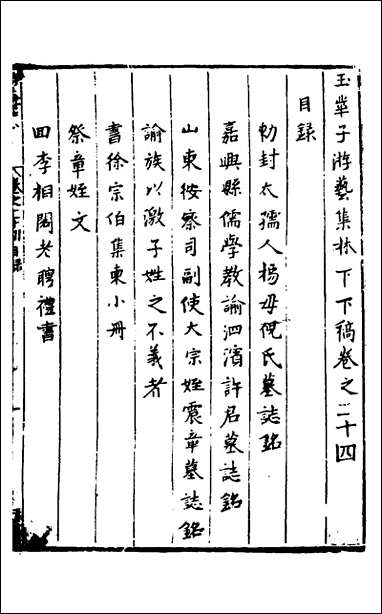 玉華子游藝集林下下稿卷之二十四
目録
勅封太孺人楊母倪氏墓誌銘
嘉興縣儒學教諭泗濱許君墓誌銘
山東按察司副使大宗姪震章墓誌銘
諭族以激子姓之不義者
書徐宗伯集柬小冊
祭章姪文
回李相閣老聘禮書